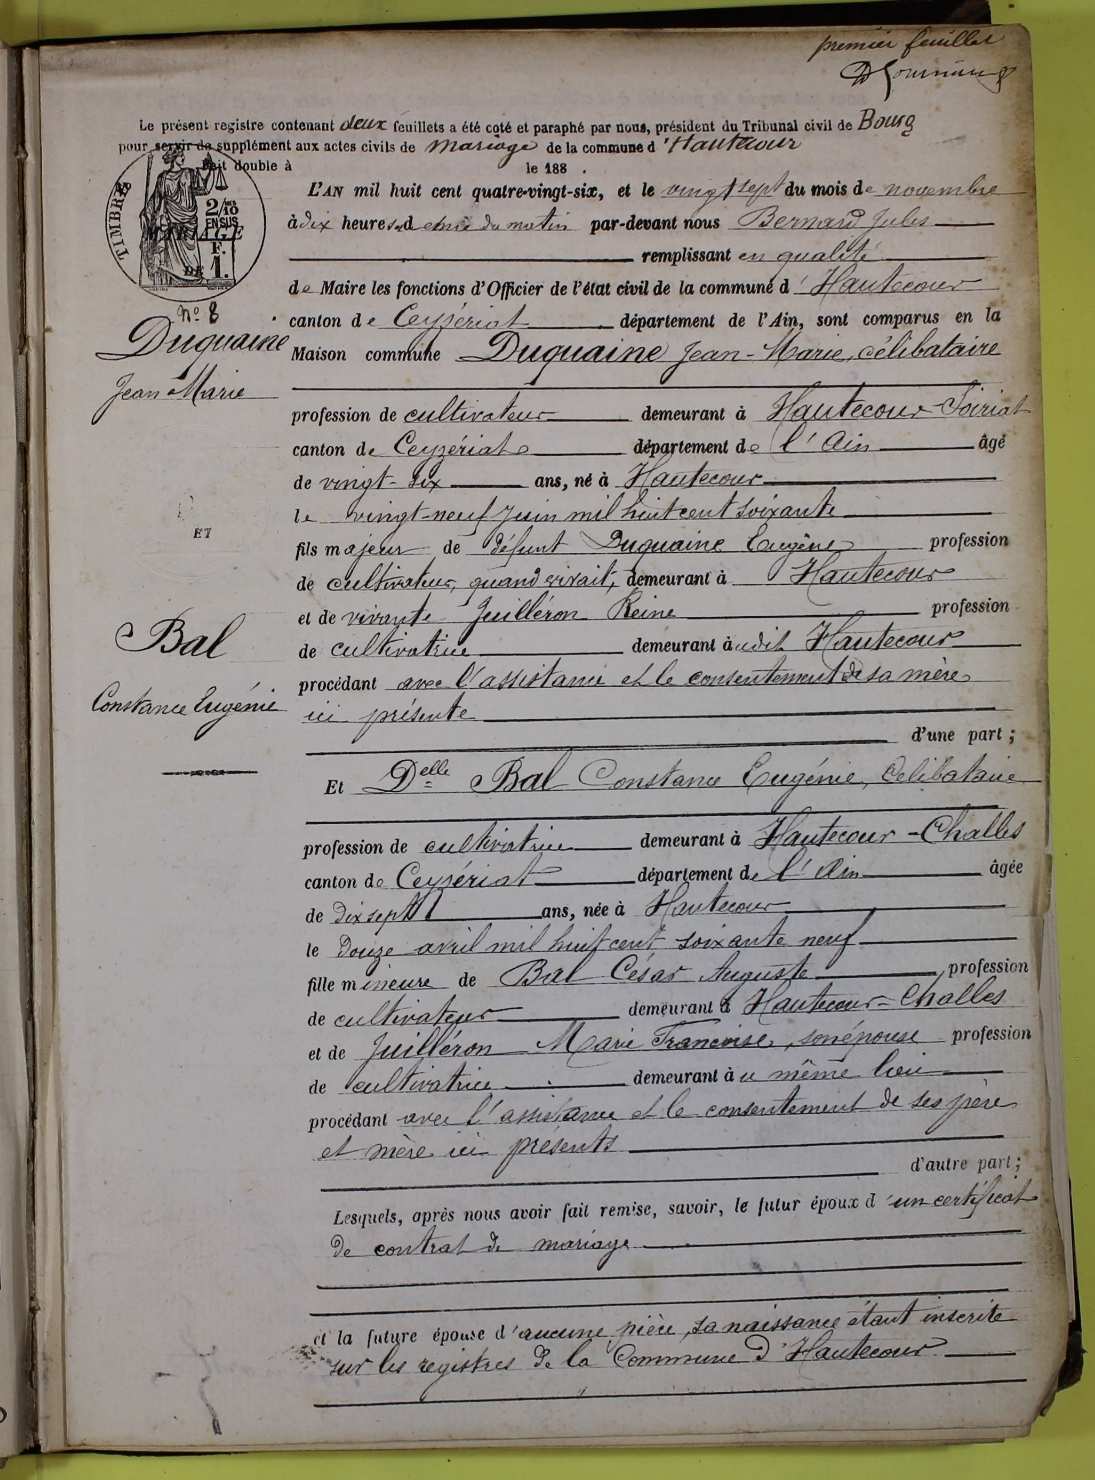 premier feuillet
Le présent registre contenant deux feuillets a été coté et paraphé par nous, président du Tribunal civil de Bourg
pour servir de supplément aux actes civils de mariage de la commune d'Hautecour
Fait double à le 188 .
TIMBRES
2/10 MES
EN SUS
MARIAGE
F.
DE 1.
L'AN mil huit cent quatre-vingt-six, et le vingt sept du mois de novembre
à dix heures et demie du matin par-devant nous Bernard Jules
remplissant en qualité
de Maire les fonctions d'Officier de l'état civil de la commune d'Hautecour
canton de Ceyzériat département de l'Ain, sont comparus en la
Maison commune Duquaine Jean-Marie, célibataire
profession de cultivateur demeurant à Hautecour-Soiriat
canton de Ceyzériat département de l'Ain âgé
de vingt-six ans, né à Hautecour
le vingt-neuf juin mil huit cent soixante
fils majeur de défunt Duquaine Eugène profession
de cultivateur, quand vivait, demeurant à Hautecour
et de vivante Juilléron Reine profession
de cultivatrice demeurant audit Hautecour
procédant avec l'assistance et le consentement de sa mère
ici présente
d'une part ;
Et Delle Bal Constance Eugénie, célibataire
profession de cultivatrice demeurant à Hautecour-Challes
canton de Ceyzériat département de l'Ain âgée
de dix sept ans, née à Hautecour
le douze avril mil huit cent soixante neuf
fille mineure de Bal César Auguste profession
de cultivateur demeurant à Hautecour-Challes
et de Juilléron Marie Françoise, son épouse profession
de cultivatrice demeurant au même lieu
procédant avec l'assistance et le consentement de ses père
et mère ici présents
d'autre part ;
Lesquels, après nous avoir fait remise, savoir, le futur époux d'un certificat
de contrat de mariage
et la future épouse d'aucune pièce, sa naissance étant inscrite
sur les registres de la Commune d'Hautecour
No 8
Duquaine
Jean Marie
ET
Bal
Constance Eugénie